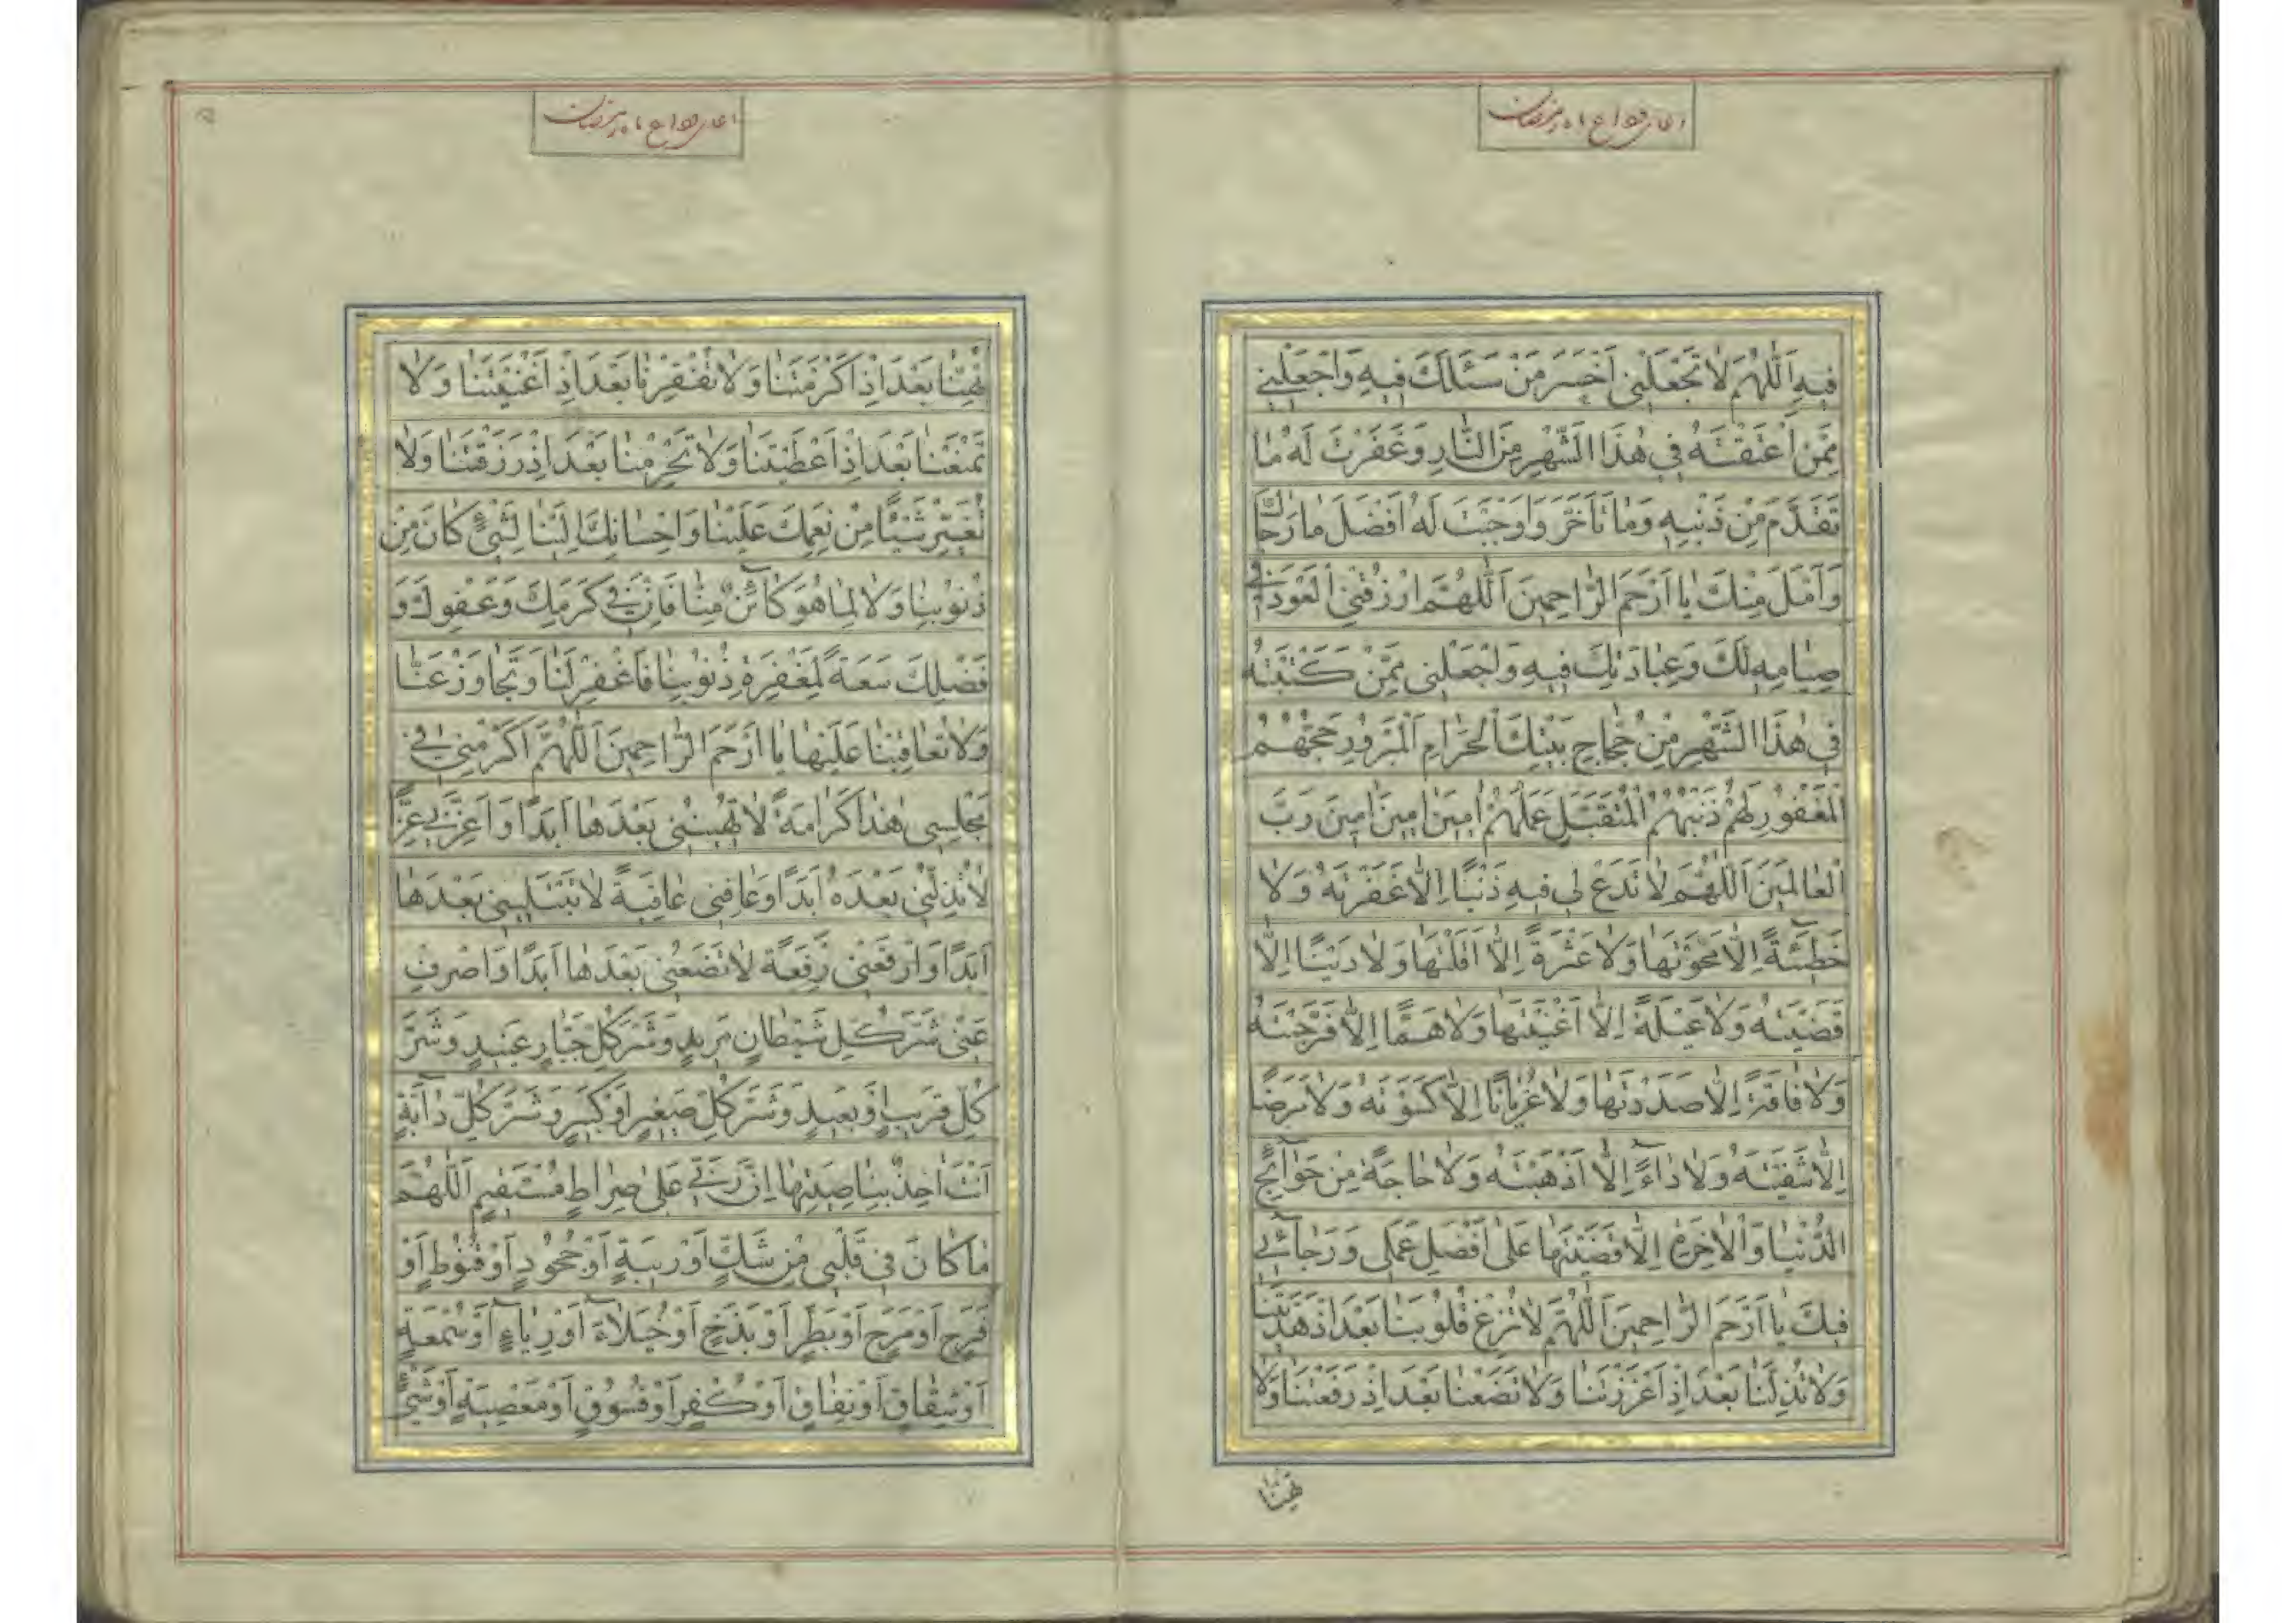 اعمال وداع ماه رمضان
فِيهِ اَللّٰهُمَّ لاٰ تَجْعَلْنِي اَخْسَرَ مَنْ سَئَلَكَ فِيهِ وَاجْعَلْنِي
مِمَّنْ اَعْتَقْتَهُ فِي هٰذَا الشَّهْرِ مِنَ النّٰارِ وَغَفَرْتَ لَهُ مٰا
تَقَدَّمَ مِنْ ذَنْبِهِ وَمٰا تَاَخَّرَ وَاَوْجَبْتَ لَهُ اَفْضَلَ مٰا رَجٰاكَ
وَاَمَّلَ مِنْكَ يٰا اَرْحَمَ الرّٰاحِمِينَ اَللّٰهُمَّ ارْزُقْنِي الْعَوْدَ فِي
صِيٰامِهِ لَكَ وَعِبٰادَتِكَ فِيهِ وَاجْعَلْنِي مِمَّنْ كَتَبْتَهُ
فِي هٰذَا الشَّهْرِ مِنْ حُجّٰاجِ بَيْتِكَ الْحَرٰامِ الْمَبْرُورِ حَجُّهُمْ
الْمَغْفُورِ لَهُمْ ذَنْبُهُمْ الْمُتَقَبَّلِ عَمَلُهُمْ اٰمِينَ اٰمِينَ اٰمِينَ رَبَّ
الْعٰالَمِينَ اَللّٰهُمَّ لاٰ تَدَعْ لِي فِيهِ ذَنْبًا اِلاّٰ غَفَرْتَهُ وَلاٰ
خَطِيئَةً اِلاّٰ مَحَوْتَهٰا وَلاٰ عَثْرَةً اِلاّٰ اَقَلْتَهٰا وَلاٰ دَيْنًا اِلاّٰ
قَضَيْتَهُ وَلاٰ عَيْلَةً اِلاّٰ اَغْنَيْتَهٰا وَلاٰ هَمًّا اِلاّٰ فَرَّجْتَهُ
وَلاٰ فٰاقَةً اِلاّٰ سَدَدْتَهٰا وَلاٰ عُرْيٰانًا اِلاّٰ كَسَوْتَهُ وَلاٰ مَرَضًا
اِلاّٰ شَفَيْتَهُ وَلاٰ دٰاءً اِلاّٰ اَذْهَبْتَهُ وَلاٰ حٰاجَةً مِنْ حَوٰائِجِ
الدُّنْيٰا وَالْاٰخِرَةِ اِلاّٰ قَضَيْتَهٰا عَلىٰ اَفْضَلِ عَمَلِي وَرَجٰائِي
فِيكَ يٰا اَرْحَمَ الرّٰاحِمِينَ اَللّٰهُمَّ لاٰ تُزِغْ قُلُوبَنٰا بَعْدَ اِذْ هَدَيْتَنٰا
وَلاٰ تُذِلَّنٰا بَعْدَ اِذْ اَعْزَزْتَنٰا وَلاٰ تَضَعْنٰا بَعْدَ اِذْ رَفَعْتَنٰا وَلاٰ
تُهِنّٰا
اعمال وداع ماه رمضان
تُهِنّٰا بَعْدَ اِذْ اَكْرَمْتَنٰا وَلاٰ تُفْقِرْنٰا بَعْدَ اِذْ اَغْنَيْتَنٰا وَلاٰ
تَمْنَعْنٰا بَعْدَ اِذْ اَعْطَيْتَنٰا وَلاٰ تَحْرِمْنٰا بَعْدَ اِذْ رَزَقْتَنٰا وَلاٰ
تُغَيِّرْ شَيْئًا مِنْ نِعَمِكَ عَلَيْنٰا وَاِحْسٰانِكَ اِلَيْنٰا لِشَيْءٍ كٰانَ مِنْ
ذُنُوبِنٰا وَلاٰ لِمٰا هُوَ كٰائِنٌ مِنّٰا فَاِنَّ فِي كَرَمِكَ وَعَفْوِكَ وَ
فَضْلِكَ سَعَةً لِمَغْفِرَةِ ذُنُوبِنٰا فَاغْفِرْ لَنٰا وَتَجٰاوَزْ عَنّٰا
وَلاٰ تُعٰاقِبْنٰا عَلَيْهٰا يٰا اَرْحَمَ الرّٰاحِمِينَ اَللّٰهُمَّ اَكْرِمْنِي فِي
مَجْلِسِي هٰذٰا كَرٰامَةً لاٰ تُهِينُنِي بَعْدَهٰا اَبَدًا وَاَعِزَّنِي عِزًّا
لاٰ تُذِلُّنِي بَعْدَهُ اَبَدًا وَعٰافِنِي عٰافِيَةً لاٰ تَبْتَلِينِي بَعْدَهٰا
اَبَدًا وَارْفَعْنِي رِفْعَةً لاٰ تَضَعُنِي بَعْدَهٰا اَبَدًا وَاصْرِفْ
عَنِّي شَرَّ كُلِّ شَيْطٰانٍ مَرِيدٍ وَشَرَّ كُلِّ جَبّٰارٍ عَنِيدٍ وَشَرَّ
كُلِّ قَرِيبٍ اَوْ بَعِيدٍ وَشَرَّ كُلِّ صَغِيرٍ اَوْ كَبِيرٍ وَشَرَّ كُلِّ دٰابَّةٍ
اَنْتَ اٰخِذٌ بِنٰاصِيَتِهٰا اِنَّ رَبِّي عَلىٰ صِرٰاطٍ مُسْتَقِيمٍ اَللّٰهُمَّ
مٰا كٰانَ فِي قَلْبِي مِنْ شَكٍّ اَوْ رِيبَةٍ اَوْ جُحُودٍ اَوْ قُنُوطٍ اَوْ
فَرَحٍ اَوْ مَرَحٍ اَوْ بَطَرٍ اَوْ بَذَخٍ اَوْ خُيَلاٰءَ اَوْ رِيٰاءٍ اَوْ سُمْعَةٍ
اَوْ شِقٰاقٍ اَوْ نِفٰاقٍ اَوْ كُفْرٍ اَوْ فُسُوقٍ اَوْ مَعْصِيَةٍ اَوْ شَيْءٍ